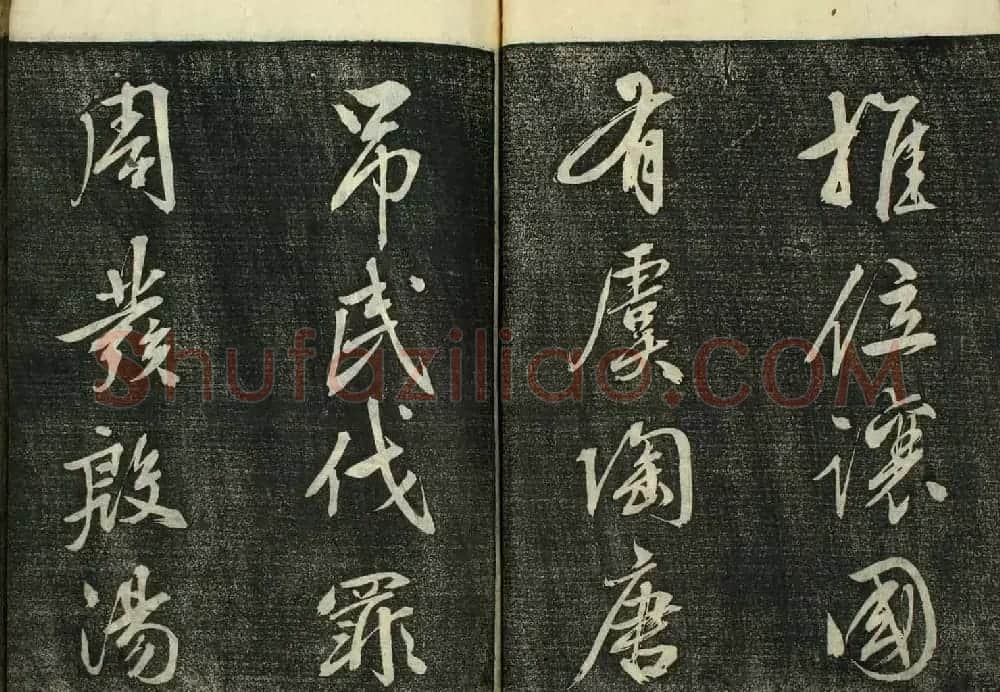 推位讓國
有虞陶唐
吊民伐罪
周發殷湯
Shufaziliao.COM